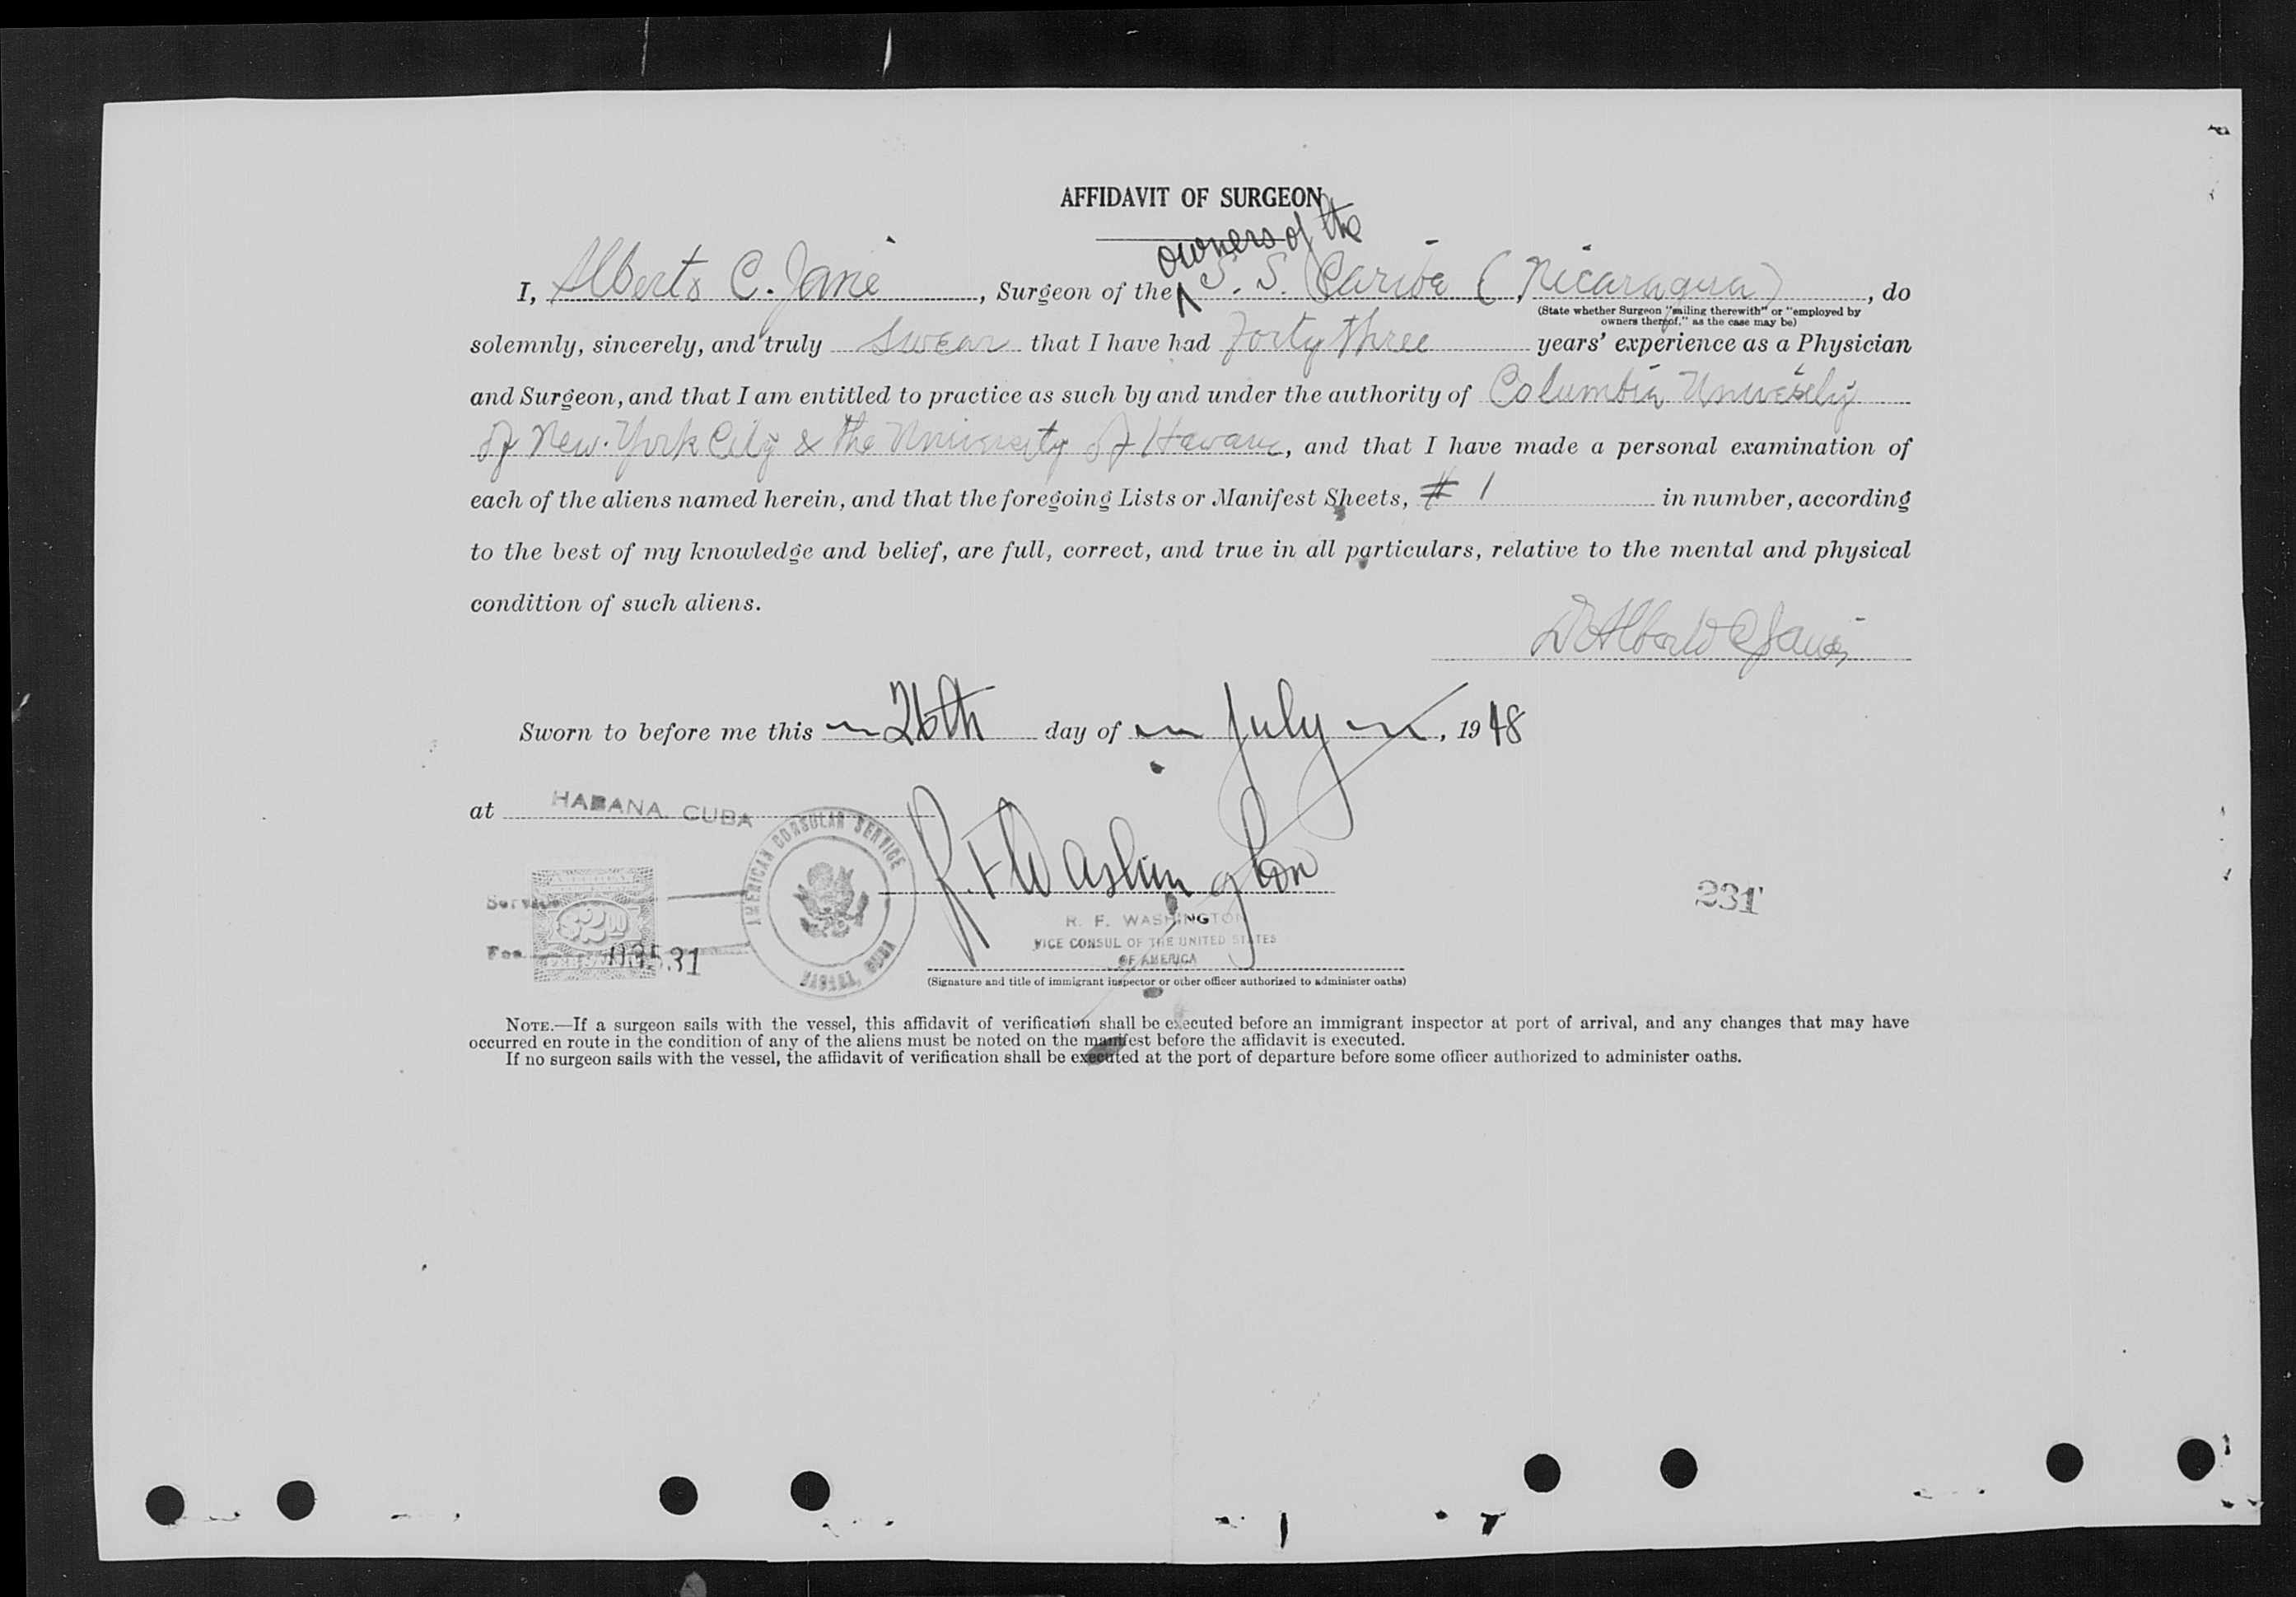 AFFIDAVIT OF SURGEON
owners of the
I, Alberto C. Jané, Surgeon of the ^ S. S. Caribe (Nicaragua), do
(State whether Surgeon "sailing therewith" or "employed by
owners thereof," as the case may be)
solemnly, sincerely, and truly swear that I have had Forty three years' experience as a Physician
and Surgeon, and that I am entitled to practice as such by and under the authority of Columbia University
of New York City & the University of Havana, and that I have made a personal examination of
each of the aliens named herein, and that the foregoing Lists or Manifest Sheets, # 1 in number, according
to the best of my knowledge and belief, are full, correct, and true in all particulars, relative to the mental and physical
condition of such aliens.
Dr Alberto C Jané
Sworn to before me this 26th day of July, 1948
at HABANA, CUBA
AMERICAN CONSULAR SERVICE
HABANA, CUBA
R. F. Washington
Service
$2.00
Fee
11353 1
231
R. F. WASHINGTON
VICE CONSUL OF THE UNITED STATES
OF AMERICA
(Signature and title of immigrant inspector or other officer authorized to administer oaths)
NOTE.—If a surgeon sails with the vessel, this affidavit of verification shall be executed before an immigrant inspector at port of arrival, and any changes that may have
occurred en route in the condition of any of the aliens must be noted on the manifest before the affidavit is executed.
If no surgeon sails with the vessel, the affidavit of verification shall be executed at the port of departure before some officer authorized to administer oaths.